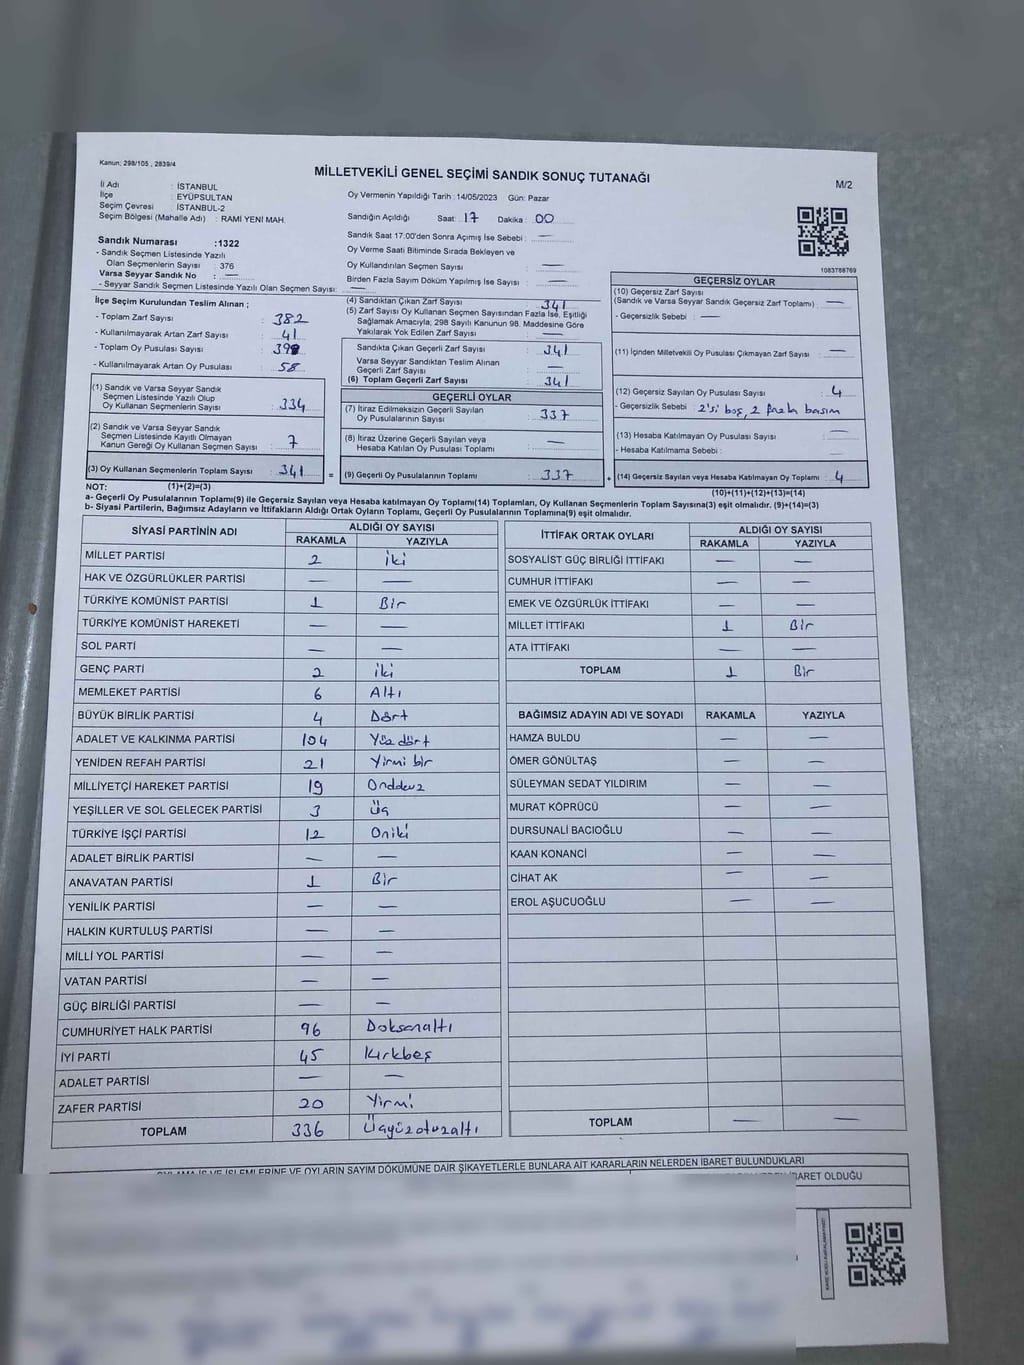 Kanun: 298/105 , 2839/4
MİLLETVEKİLİ GENEL SEÇİMİ SANDIK SONUÇ TUTANAĞI
M/2
İl Adı : İSTANBUL
İlçe : EYÜPSULTAN
Seçim Çevresi : İSTANBUL-2
Seçim Bölgesi (Mahalle Adı) : RAMİ YENİ MAH.
Oy Vermenin Yapıldığı Tarih : 14/05/2023 Gün: Pazar
Sandığın Açıldığı Saat : 17 Dakika : 00
Sandık Saat 17:00'den Sonra Açımış İse Sebebi : —
Oy Verme Saati Bitiminde Sırada Bekleyen ve
Oy Kullandırılan Seçmen Sayısı : —
Birden Fazla Sayım Döküm Yapılmış İse Sayısı : —
Sandık Numarası : 1322
- Sandık Seçmen Listesinde Yazılı
Olan Seçmenlerin Sayısı : 376
Varsa Seyyar Sandık No : —
- Seyyar Sandık Seçmen Listesinde Yazılı Olan Seçmen Sayısı: —
1083788769
İlçe Seçim Kurulundan Teslim Alınan ;
- Toplam Zarf Sayısı : 382
- Kullanılmayarak Artan Zarf Sayısı : 41
- Toplam Oy Pusulası Sayısı :
- Kullanılmayarak Artan Oy Pusulası : 58
(1) Sandık ve Varsa Seyyar Sandık
Seçmen Listesinde Yazılı Olup
Oy Kullanan Seçmenlerin Sayısı : 334
(2) Sandık ve Varsa Seyyar Sandık
Seçmen Listesinde Kayıtlı Olmayan
Kanun Gereği Oy Kullanan Seçmen Sayısı : 7
(3) Oy Kullanan Seçmenlerin Toplam Sayısı : 341
(4) Sandıktan Çıkan Zarf Sayısı : 341
(5) Zarf Sayısı Oy Kullanan Seçmen Sayısından Fazla İse, Eşitliği
Sağlamak Amacıyla, 298 Sayılı Kanunun 98. Maddesine Göre
Yakılarak Yok Edilen Zarf Sayısı : —
Sandıkta Çıkan Geçerli Zarf Sayısı : 341
Varsa Seyyar Sandıktan Teslim Alınan
Geçerli Zarf Sayısı : —
(6) Toplam Geçerli Zarf Sayısı : 341
GEÇERLİ OYLAR
(7) İtiraz Edilmeksizin Geçerli Sayılan
Oy Pusulalarının Sayısı : 337
(8) İtiraz Üzerine Geçerli Sayılan veya
Hesaba Katılan Oy Pusulası Toplamı : —
= (9) Geçerli Oy Pusulalarının Toplamı : 337
GEÇERSİZ OYLAR
(10) Geçersiz Zarf Sayısı
(Sandık ve Varsa Seyyar Sandık Geçersiz Zarf Toplamı) : —
- Geçersizlik Sebebi : —
(11) İçinden Milletvekili Oy Pusulası Çıkmayan Zarf Sayısı : —
(12) Geçersiz Sayılan Oy Pusulası Sayısı : 4
- Geçersizlik Sebebi : 2'si boş, 2 fazla basım
(13) Hesaba Katılmayan Oy Pusulası Sayısı : —
- Hesaba Katılmama Sebebi :
+ (14) Geçersiz Sayılan veya Hesaba Katılmayan Oy Toplamı : 4
NOT: (1)+(2)=(3)
(10)+(11)+(12)+(13)=(14)
a- Geçerli Oy Pusulalarının Toplamı(9) ile Geçersiz Sayılan veya Hesaba katılmayan Oy Toplamı(14) Toplamları, Oy Kullanan Seçmenlerin Toplam Sayısına(3) eşit olmalıdır. (9)+(14)=(3)
b- Siyasi Partilerin, Bağımsız Adayların ve İttifakların Aldığı Ortak Oyların Toplamı, Geçerli Oy Pusulalarının Toplamına(9) eşit olmalıdır.
SİYASİ PARTİNİN ADI ALDIĞI OY SAYISI
RAKAMLA YAZIYLA
MİLLET PARTİSİ 2 iki
HAK VE ÖZGÜRLÜKLER PARTİSİ — —
TÜRKİYE KOMÜNİST PARTİSİ 1 Bir
TÜRKİYE KOMÜNİST HAREKETİ — —
SOL PARTİ — —
GENÇ PARTİ 2 iki
MEMLEKET PARTİSİ 6 Altı
BÜYÜK BİRLİK PARTİSİ 4 Dört
ADALET VE KALKINMA PARTİSİ 104 Yüz dört
YENİDEN REFAH PARTİSİ 21 Yirmi bir
MİLLİYETÇİ HAREKET PARTİSİ 19 Ondokuz
YEŞİLLER VE SOL GELECEK PARTİSİ 3 Üç
TÜRKİYE İŞÇİ PARTİSİ 12 Oniki
ADALET BİRLİK PARTİSİ — —
ANAVATAN PARTİSİ 1 Bir
YENİLİK PARTİSİ — —
HALKIN KURTULUŞ PARTİSİ — —
MİLLİ YOL PARTİSİ — —
VATAN PARTİSİ — —
GÜÇ BİRLİĞİ PARTİSİ — —
CUMHURİYET HALK PARTİSİ 96 Doksanaltı
İYİ PARTİ 45 Kırkbeş
ADALET PARTİSİ — —
ZAFER PARTİSİ 20 Yirmi
TOPLAM 336 Üçyüzotuzaltı
İTTİFAK ORTAK OYLARI ALDIĞI OY SAYISI
RAKAMLA YAZIYLA
SOSYALİST GÜÇ BİRLİĞİ İTTİFAKI — —
CUMHUR İTTİFAKI — —
EMEK VE ÖZGÜRLÜK İTTİFAKI — —
MİLLET İTTİFAKI 1 Bir
ATA İTTİFAKI — —
TOPLAM 1 Bir
BAĞIMSIZ ADAYIN ADI VE SOYADI RAKAMLA YAZIYLA
HAMZA BULDU — —
ÖMER GÖNÜLTAŞ — —
SÜLEYMAN SEDAT YILDIRIM — —
MURAT KÖPRÜCÜ — —
DURSUNALİ BACIOĞLU — —
KAAN KONANCİ — —
CİHAT AK — —
EROL AŞUCUOĞLU — —
TOPLAM — —
OYLAMA İŞ VE İŞLEMLERİNE VE OYLARIN SAYIM DÖKÜMÜNE DAİR ŞİKAYETLERLE BUNLARA AİT KARARLARIN NELERDEN İBARET BULUNDUKLARI
İBARET OLDUĞU